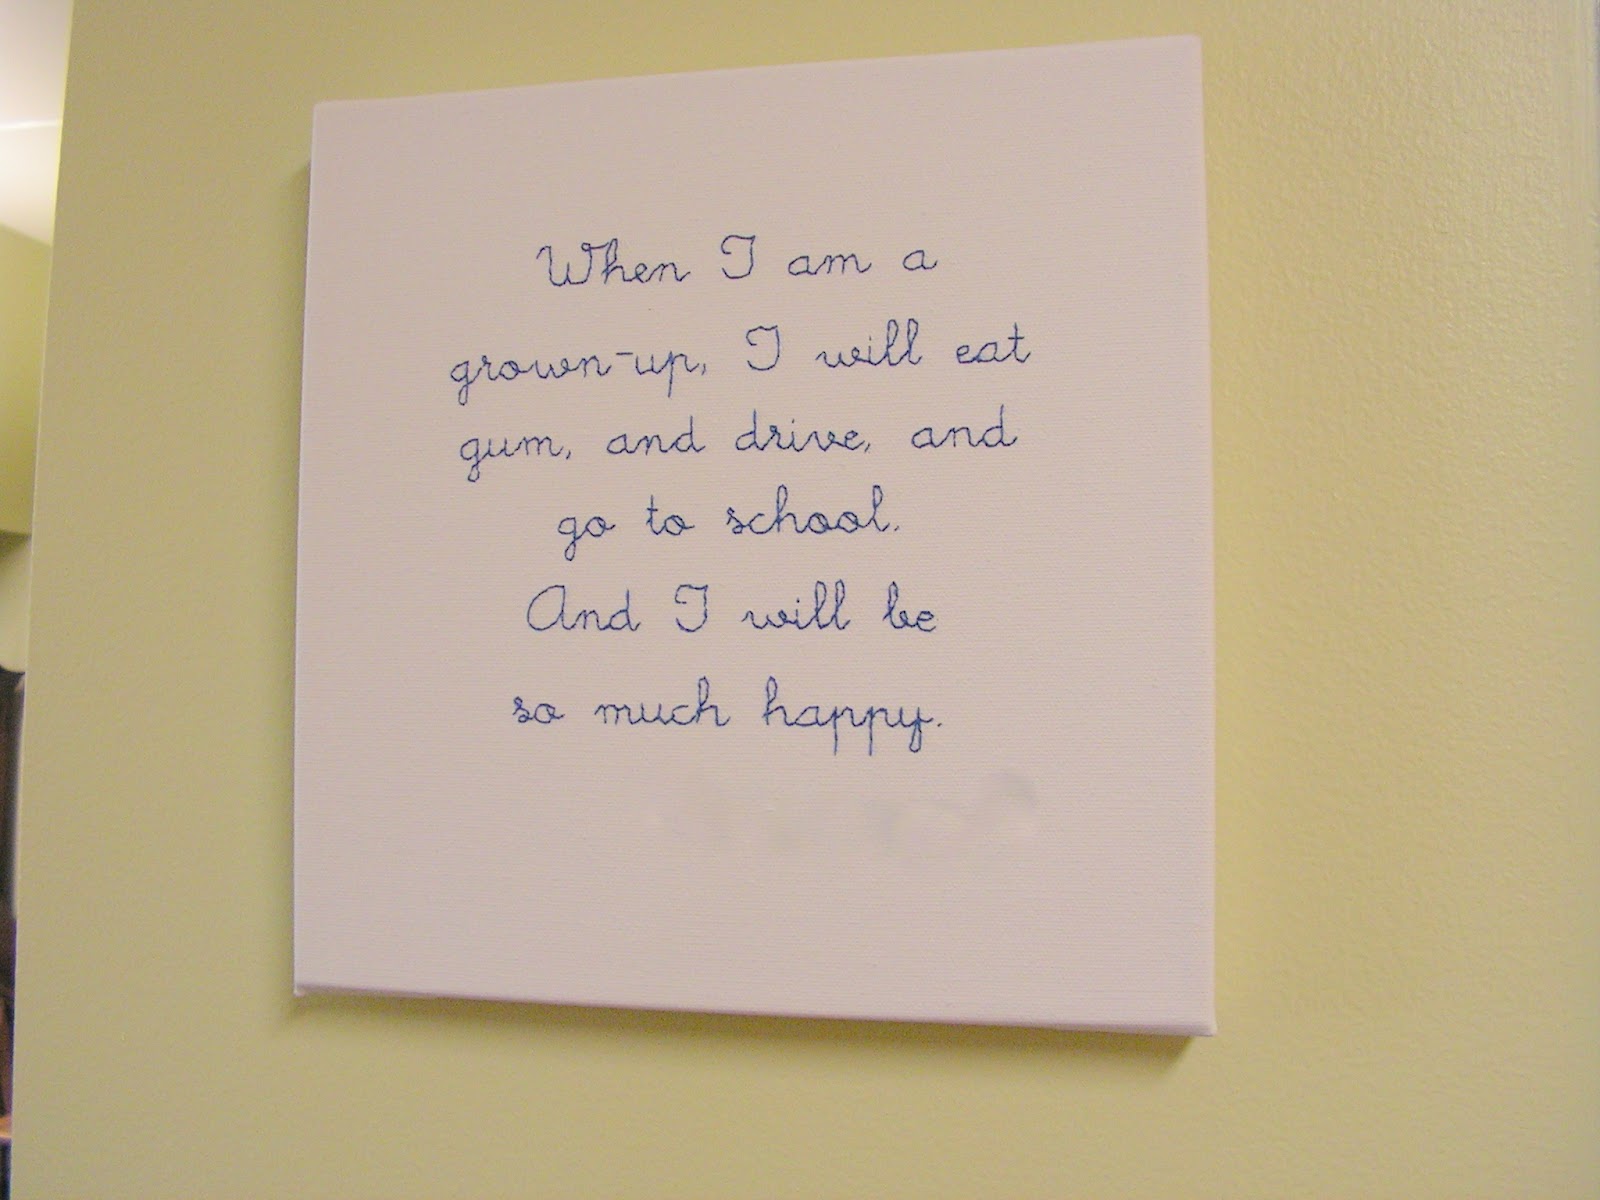 When I am a
grown-up, I will eat
gum, and drive, and
go to school.
And I will be
so much happy.